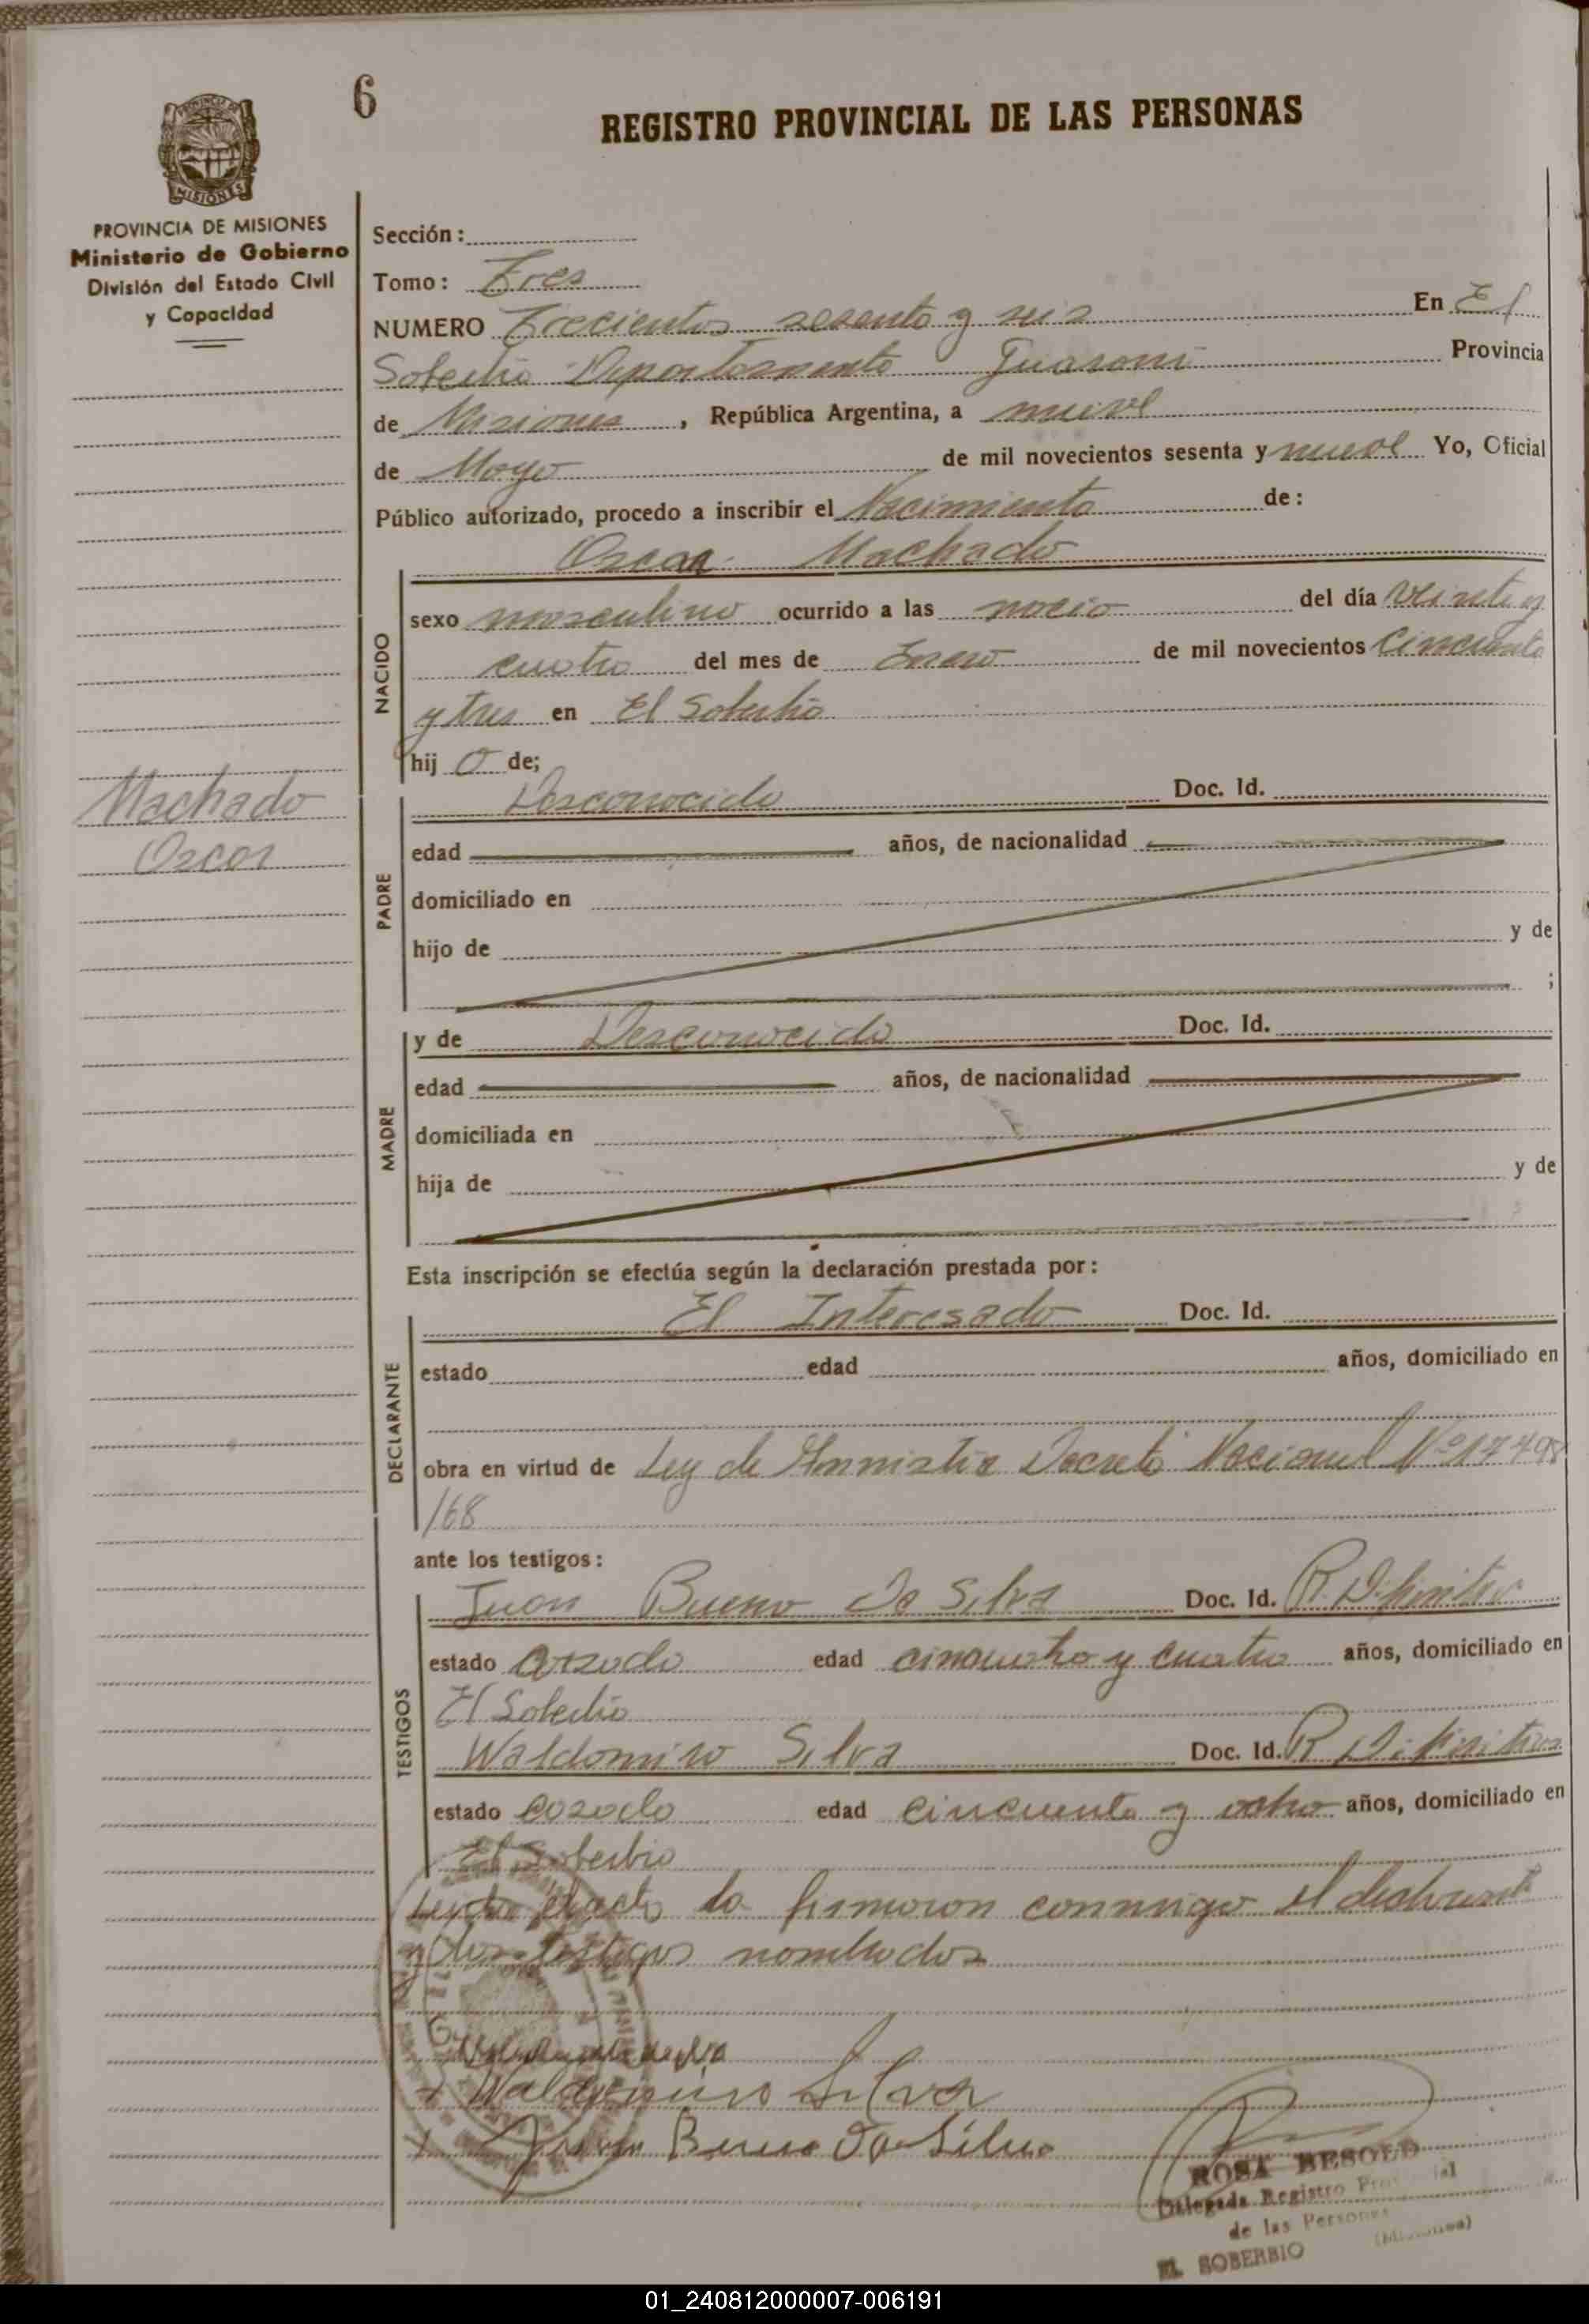 6
REGISTRO PROVINCIAL DE LAS PERSONAS
MISIONES
PROVINCIA DE MISIONES
Ministerio de Gobierno
División del Estado Civil
y Capacidad
Machado
Oscar
Sección :
Tomo : Tres
NUMERO Trecientos sesenta y seis En El
Soberbio Departamento Guarani Provincia
de Misiones , República Argentina, a nueve
de Mayo de mil novecientos sesenta y nueve Yo, Oficial
Público autorizado, procedo a inscribir el Nacimiento de :
Oscar Machado
NACIDO
sexo masculino ocurrido a las del día veinte y
cuatro del mes de Enero de mil novecientos cincuenta
y tres en El Soberbio
hij o de;
PADRE
Desconocido Doc. Id.
edad años, de nacionalidad
domiciliado en
hijo de y de
;
MADRE
y de Desconocido Doc. Id.
edad años, de nacionalidad
domiciliada en
hija de y de
Esta inscripción se efectúa según la declaración prestada por :
DECLARANTE
El Interesado Doc. Id.
estado edad años, domiciliado en
obra en virtud de Ley de Amnistia Decreto Nacional Nº 17498
/68
ante los testigos :
TESTIGOS
Juan Bueno Da Silva Doc. Id. R. Difinitivo
estado Casado edad cincuenta y cuatro años, domiciliado en
El Soberbio
Waldomiro Silva Doc. Id. R Difinitivo
estado Casado edad cincuenta y ocho años, domiciliado en
El Soberbio
Leyda el acta la firmaron conmigo el declarante
y los testigos nombrados
Waldomiro Silva
Juan Bueno Da Silva
ROSA BESOLD
Delegada Registro Provincial
de las Personas
EL SOBERBIO (Misiones)
01_240812000007-006191